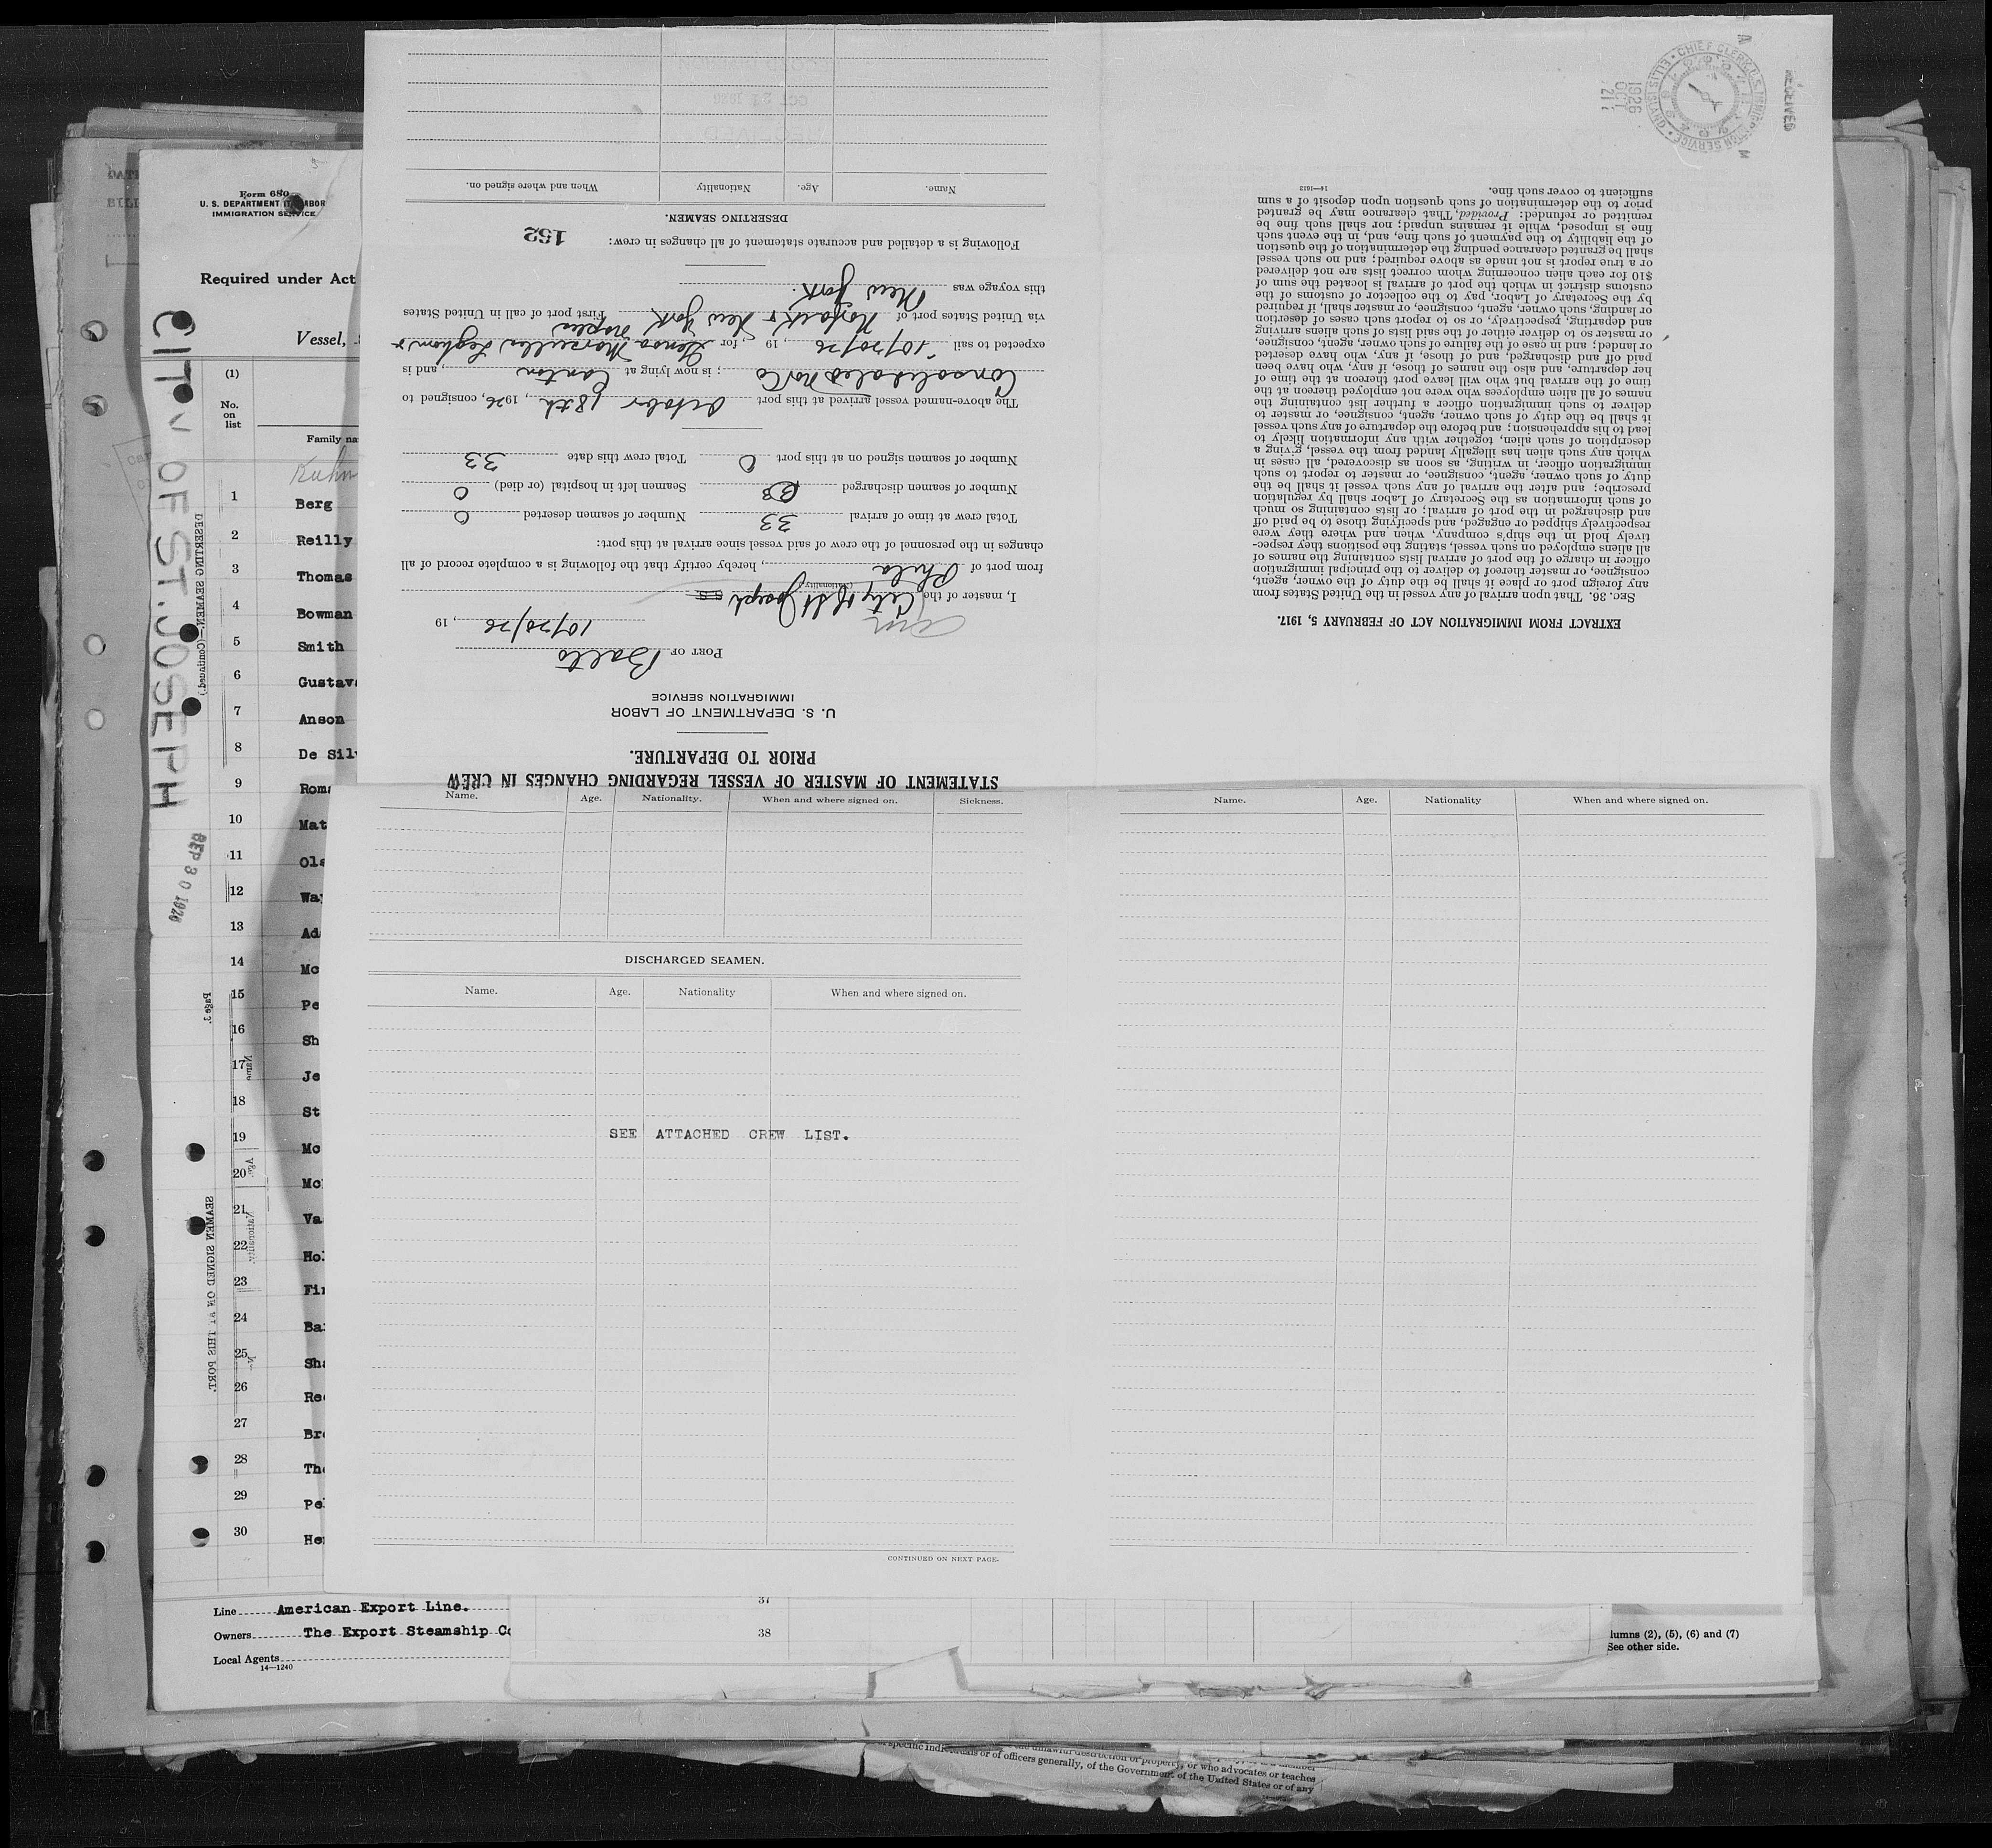 Form 680
U. S. DEPARTMENT OF LABOR
IMMIGRATION SERVICE
Required under Act
Vessel,
(1)
No.
on
list
Family na
Kuhn
1 Berg
2 Reilly
3 Thomas
4 Bowman
5 Smith
6 Gustav
7 Anson
8 De Sil
9 Rom
10 Mat
11 Ols
12 Wa
13 Ad
14 Mc
15 Pe
16 Sh
17 Je
18 St
19 Mc
20 Mc
21 Va
22 Ho
23 Fi
24 Ba
25 Sha
26 Re
27 Br
28 Th
29 Pe
30 He
Line American Export Line.
Owners The Export Steamship Co
Local Agents
14—1240
CITY OF ST. JOSEPH
SEP 30 1926
DESERTING SEAMEN.—(Continued.)
Page 2.
Name
Age
Nationality.
SEAMEN SIGNED ON AT THIS PORT.
STATEMENT OF MASTER OF VESSEL REGARDING CHANGES IN CREW
PRIOR TO DEPARTURE.
U. S. DEPARTMENT OF LABOR
IMMIGRATION SERVICE
PORT OF Balto
10/20/26, 19
I, master of the S S City of St Joseph
(Nationality)
from port of Phila, hereby certify that the following is a complete record of all
changes in the personnel of the crew of said vessel since arrival at this port:
Total crew at time of arrival 33 Number of seamen deserted 0
Number of seamen discharged Seamen left in hospital (or died) 0
Number of seamen signed on at this port 0 Total crew this date 33
The above-named vessel arrived at this port October 18th, 1926, consigned to
Consolidated Nav Co; is now lying at Canton, and is
expected to sail 10/20/26, 19, for Genoa Marseilles Leghorn &
Naples
via United States port of Norfolk & New York First port of call in United States
this voyage was New York.
Following is a detailed and accurate statement of all changes in crew:
152
DESERTING SEAMEN.
Name. Age. Nationality When and where signed on.
EXTRACT FROM IMMIGRATION ACT OF FEBRUARY 5, 1917.
SEC. 36. That upon arrival of any vessel in the United States from
any foreign port or place it shall be the duty of the owner, agent,
consignee, or master thereof to deliver to the principal immigration
officer in charge of the port of arrival lists containing the names of
all aliens employed on such vessel, stating the positions they respec-
tively hold in the ship's company, when and where they were
respectively shipped or engaged, and specifying those to be paid off
and discharged in the port of arrival; or lists containing so much
of such information as the Secretary of Labor shall by regulation
prescribe; and after the arrival of any such vessel it shall be the
duty of such owner, agent, consignee, or master to report to such
immigration officer, in writing, as soon as discovered, all cases in
which any such alien has illegally landed from the vessel, giving a
description of such alien, together with any information likely to
lead to his apprehension; and before the departure of any such vessel
it shall be the duty of such owner, agent, consignee, or master to
deliver to such immigration officer a further list containing the
names of all alien employees who were not employed thereon at the
time of the arrival but who will leave port thereon at the time of
her departure, and also the names of those, if any, who have been
paid off and discharged, and of those, if any, who have deserted
or landed; and in case of the failure of such owner, agent, consignee,
or master so to deliver either of the said lists of such aliens arriving
and departing, respectively, or so to report such cases of desertion
or landing, such owner, agent, consignee, or master shall, if required
by the Secretary of Labor, pay to the collector of customs of the
customs district in which the port of arrival is located the sum of
$10 for each alien concerning whom correct lists are not delivered
or a true report is not made as above required; and no such vessel
shall be granted clearance pending the determination of the question
of the liability to the payment of such fine, and, in the event such
fine is imposed, while it remains unpaid; nor shall such fine be
remitted or refunded: Provided, That clearance may be granted
prior to the determination of such question upon deposit of a sum
sufficient to cover such fine.
14—1613
RECEIVED
CHIEF CLERK U.S. IMMIGRATION SERVICE ELLIS ISLAND
1926
OCT
21
Name. Age. Nationality. When and where signed on. Sickness.
DISCHARGED SEAMEN.
Name. Age. Nationality When and where signed on.
SEE ATTACHED CREW LIST.
CONTINUED ON NEXT PAGE.
Name. Age. Nationality When and where signed on.
37
38
lumns (2), (5), (6) and (7)
See other side.
the unlawful destruction of property, or who advocates or teaches
of specific individuals or of officers generally, of the Government of the United States or of any